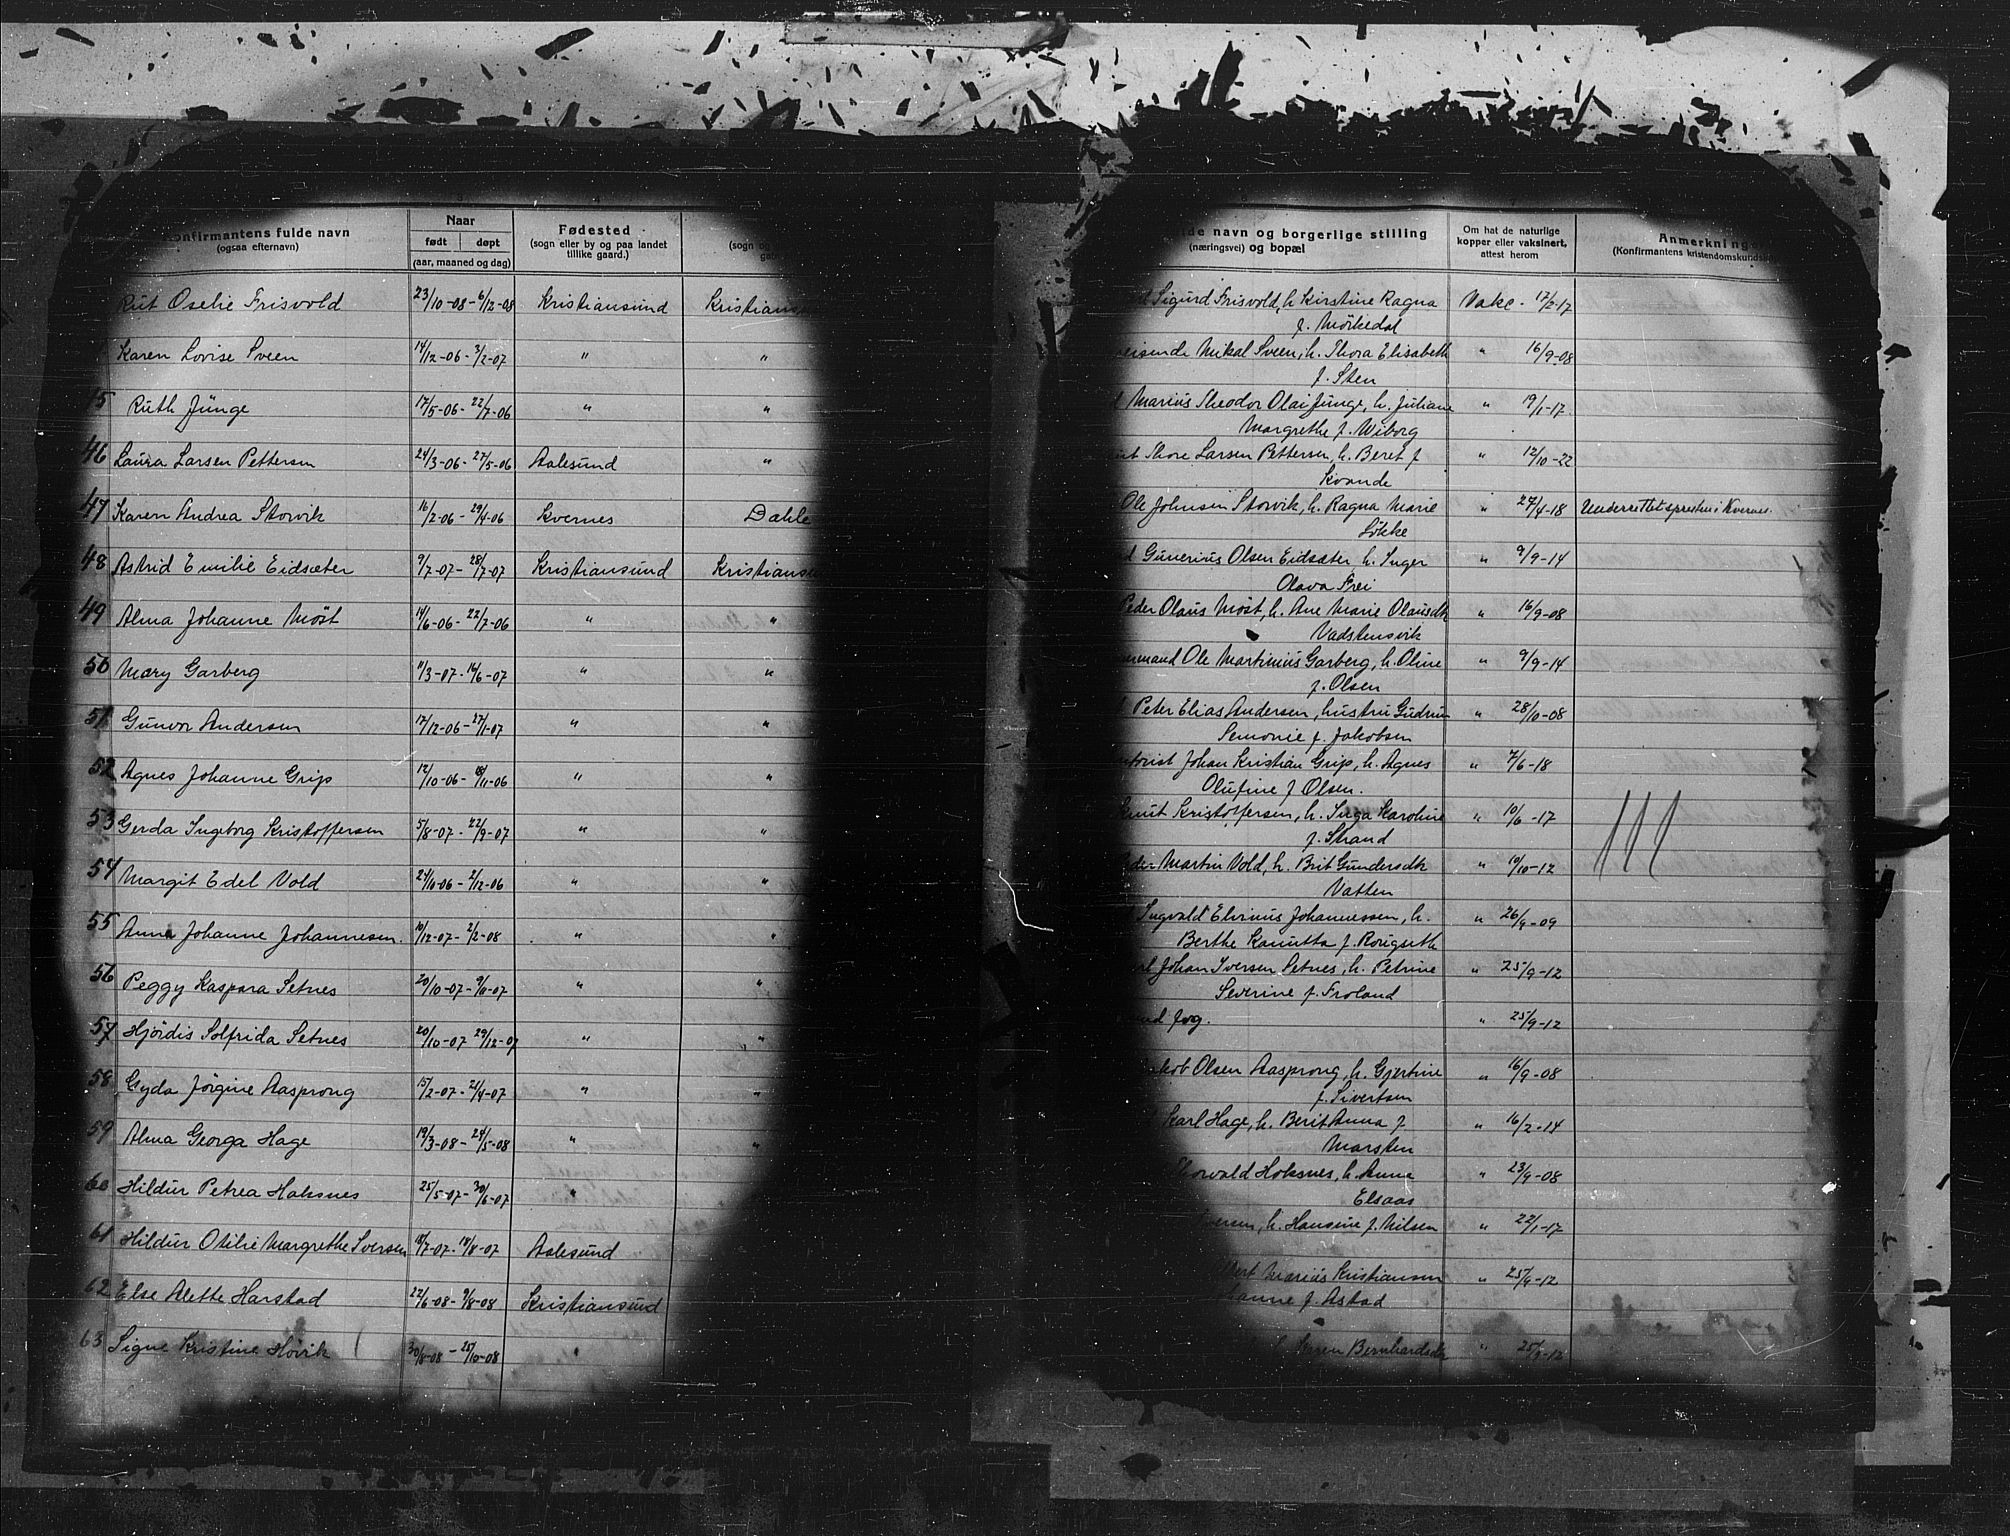 Konfirmantens fulde navn
(ogsaa efternavn)
Naar
født døpt
(aar, maaned og dag)
Fødested
(sogn eller by og paa landet
tillike gaard.)
(sogn og
navn og borgerlige stilling
(næringsvei) og bopæl
Om hat de naturlige
kopper eller vaksinert,
attest herom
Anmerkninge
(Konfirmantens kristendomskunds
Rut Oselie Frisvold 23/10-08 - 6/12-08 Kristiansund Kristians Sigurd Frisvold, h. Kirstine Ragna Vakc. 17/2-17
f. Mörkedal
Karen Lovise Sveen 14/12-06 - 3/2-07 " " reisende Mikal Sveen, h. Thora Elisabeth " 16/9-08
f. Sten
45 Ruth Junge 17/5-06 - 22/7-06 " " Marius Theodor Olai Junge, h. Juliane " 19/1-17
Margrethe f. Wiborg
46 Laura Larsen Pettersen 24/3-06 - 27/5-06 Aalesund " Thore Larsen Pettersen, h. Beret f " 12/10-22
Kvande
47 Karen Andrea Storvik 16/2-06 - 29/4-06 Kvernes Dahle Ole Johnsen Storvik, h. Ragna Marie " 27/4-18 Underrettet spresten i Kvernes.
Løkke
48 Astrid Emilie Eidsæter 9/7-07 - 28/7-07 Kristiansund Kristians Gunerius Olsen Eidsæter, h. Inger " 9/9-14
Olava Frei
49 Alma Johanne Møst 14/6-06 - 22/7-06 " " Peder Olaus Møst, h. Ane Marie Olausdtr " 16/9-08
Vadstensvik
50 Mary Garberg 11/3-07 - 16/6-07 " " Ole Martinius Garberg, h. Oline " 9/9-14
f. Olsen
51 Gunvor Andersen 17/12-06 - 27/1-07 " " Peter Elias Andersen, hustru Gudrun " 28/10-08
Semonie f. Jakobsen
52 Agnes Johanne Grip 12/10-06 - 18/11-06 " " Johan Kristian Grip, h. Agnes " 7/6-18
Olufine f Olsen.
53 Gerda Ingeborg Kristoffersen 5/8-07 - 22/9-07 " " Knut Kristoffersen, h. Inga Karoline " 10/6-17
f. Strand
54 Margit Edel Vold 24/10-06 - 2/12-06 " " Martin Vold, h. Brit Gundersdtr " 10/10-12
Vatten
55 Anna Johanne Johannesen. 10/12-07 - 2/2-08 " " Ingvald Elvinus Johannessen, h. " 26/9-09
Berthe Kanutta f. Rougseth
56 Peggy Kaspara Setnes 20/10-07 - 9/11-07 " " Johan Iversen Setnes, h. Petrine " 25/9-12
Severine f. Froland
57 Hjördis Solfrida Setnes 20/10-07 29/12-07 " " " 25/9-12
58 Gyda Jørgine Aasprong 15/2-07 - 21/4-07 " " Jakob Olsen Aasprong, h. Gjertine " 16/9-08
f. Sivertsen
59 Alma Georga Hage 19/3-08 - 24/5-08 " " Karl Hage, h. Berit Anna f " 16/2-14
Marsten
60 Hildur Petrea Hoksnes 25/5-07 - 30/6-07 " Thorvald Hoksnes, h. Anna " 23/9-08
Elsaas
61 Hildur Otilie Margrethe Iversen 18/7-07 - 18/8-07 Aalesund Iversen, h. Hansine f. Nilsen " 22/1-17
62 Else Alette Harstad 22/6-08 - 9/8-08 Kristiansund Marius Kristiansen " 25/9-12
f. Astad
63 Signe Kristine Høvik 30/8-08 - 25/10-08 " Karen Bernhardsdtr " 25/9-12